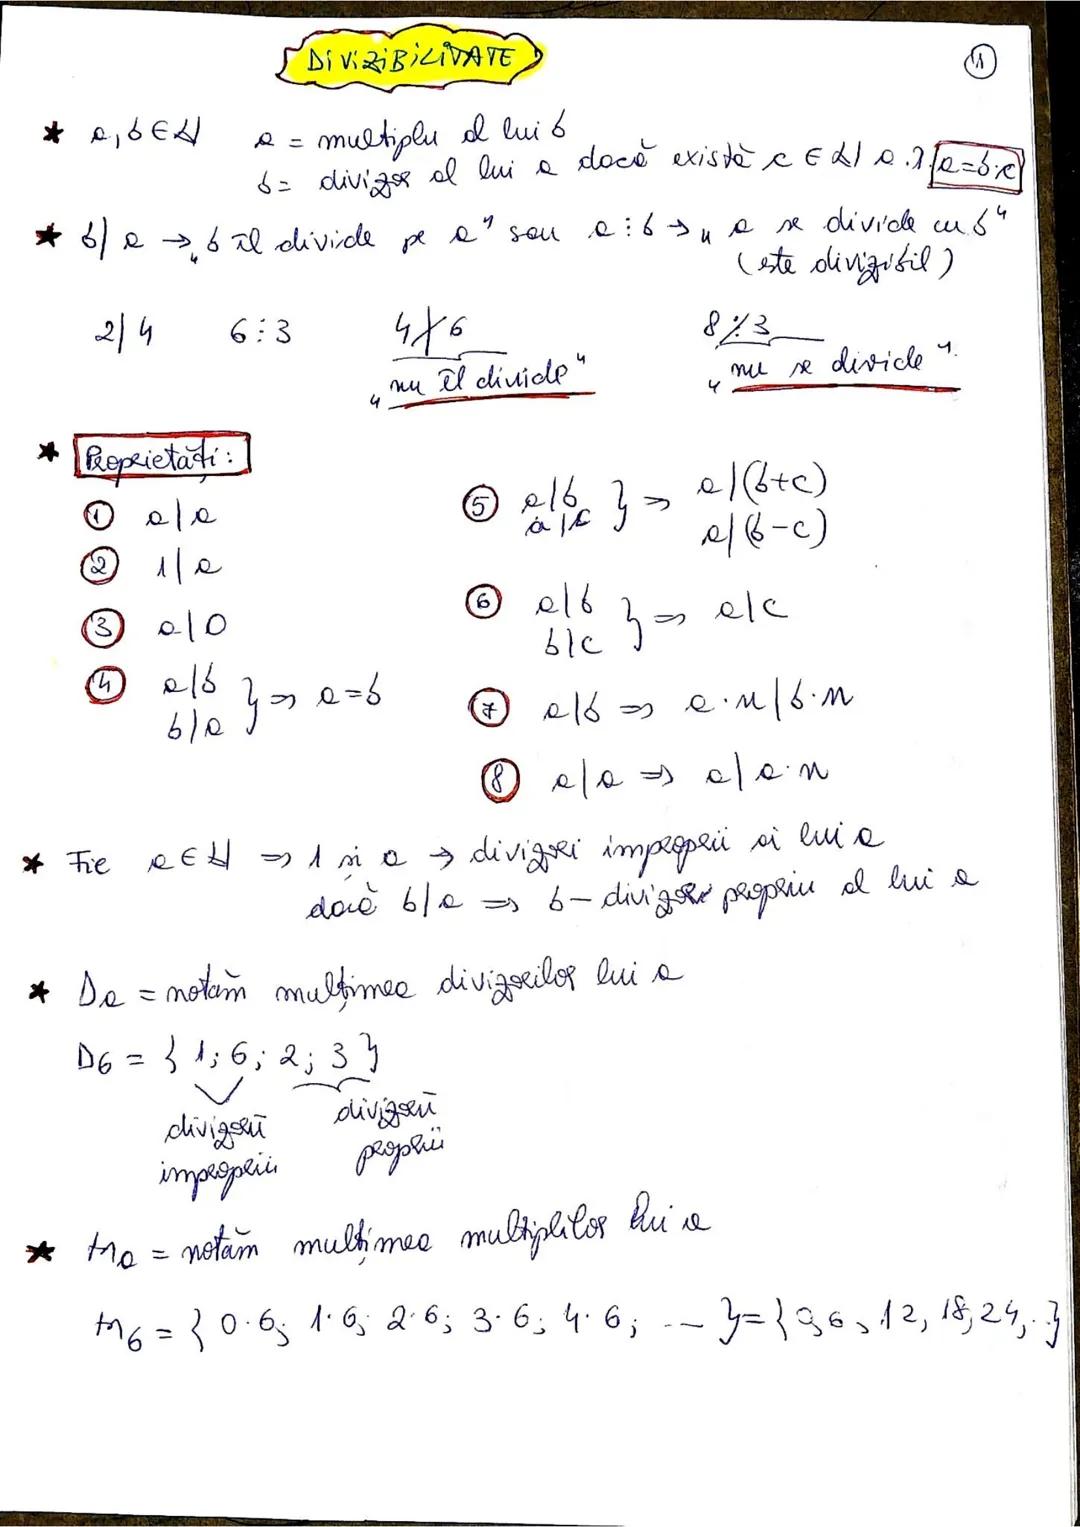 DIVIZIBILITATE
1
* a, b ∈ ℕ a = multiplu al lui b
b = divizor al lui a dacă există c ∈ ℕ a.î. a=b·c
* b|a → „b îl divide pe a" sau a⋮b → „a se divide cu b"
(este divizibil)
2|4 6⋮3 4∤6 8⋮̸3
„nu îl divide" „nu se divide".
* Proprietăți:
① a|a
② 1|a
③ a|0
④ a|b
b|a } ⇒ a=b
⑤ a|b
a|c } ⇒ a|(b+c)
a|(b-c)
⑥ a|b
b|c } ⇒ a|c
⑦ a|b ⇒ a·n|b·n
⑧ a|a ⇒ a|a·n
* Fie a ∈ ℕ ⇒ 1 și a → divizori improprii ai lui a
dacă b|a ⇒ b – divizor propriu al lui a
* Da = notăm mulțimea divizorilor lui a
D6 = { 1; 6; 2; 3 }
divizorii improprii
divizorii proprii
* Ma = notăm mulțimea multiplilor lui a
M6 = { 0·6; 1·6; 2·6; 3·6; 4·6; ... } = { 0, 6, 12, 18, 24, .. }